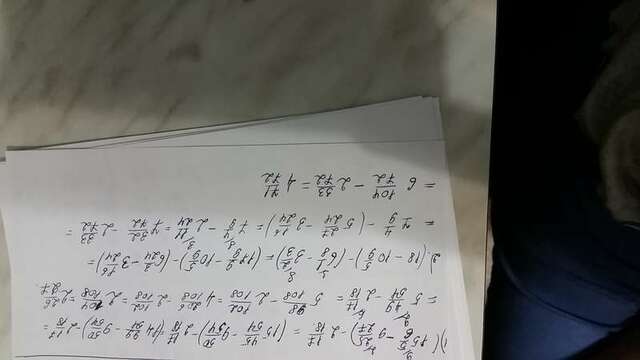 1) (15 5/6 - 9 25/27) - 2 17/18 = (15 45/54 - 9 50/54) - 2 17/18 = (14 99/54 - 9 50/54) - 2 17/18 =
= 5 49/54 - 2 17/18 = 5 98/108 - 2 102/108 = 4 206/108 - 2 102/108 = 2 104/108 = 2 26/27.
2) (18 - 10 5/9) - (6 1/8 - 3 2/3) = (17 9/9 - 10 5/9) - (6 3/24 - 3 16/24) =
= 7 4/9 - (5 27/24 - 3 16/24) = 7 4/9 - 2 11/24 = 7 32/72 - 2 33/72 =
= 6 104/72 - 2 33/72 = 4 71/72